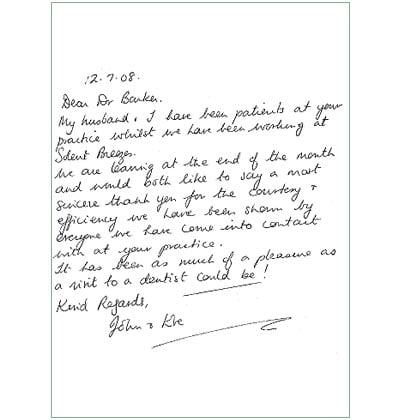 12.7.08.
Dear Dr Banker.
My husband & I have been patients at your
practice whilst we have been working at
Solent Breezes.
We are leaving at the end of the month
and would both like to say a most
sincere thank you for the courtesy &
efficiency we have been shown by
everyone we have come into contact
with at your practice.
It has been as much of a pleasure as
a visit to a dentist could be!
Kind Regards,
John &